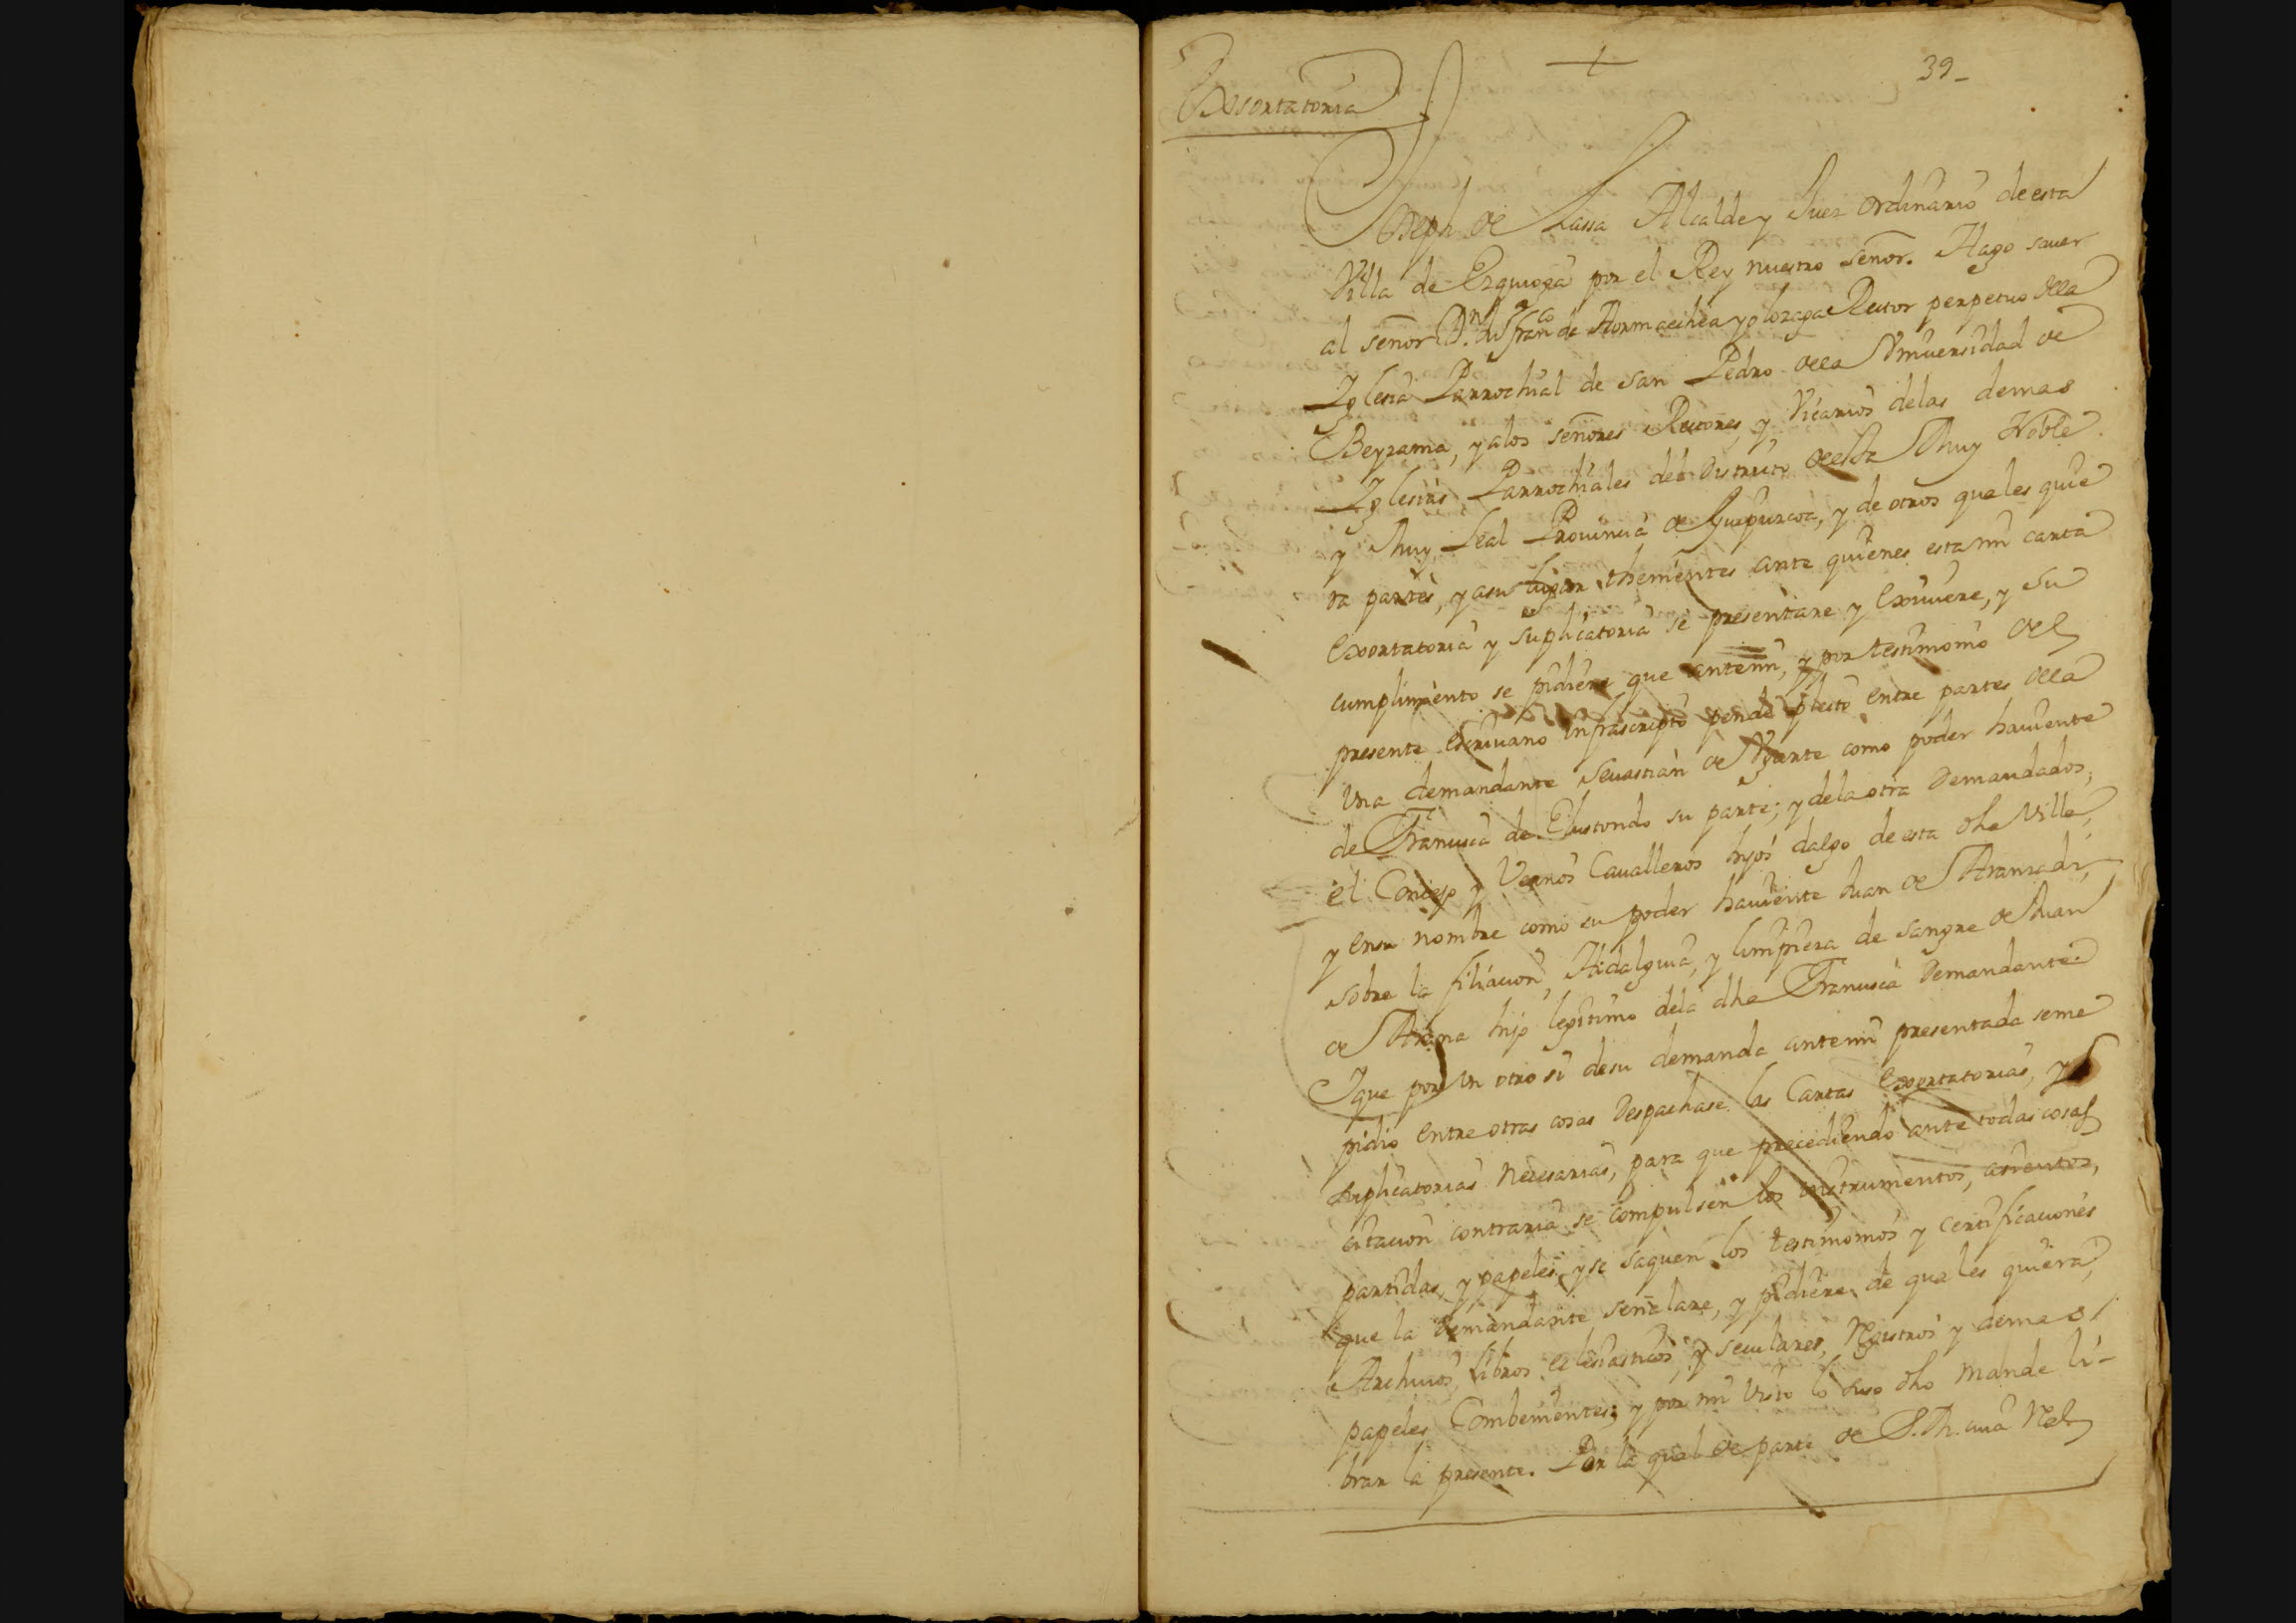 39_
Exsortatoria
Joseph de Lassa Alcalde y Juez ordinario de esta
Villa de Ezquioga por el Rey nuestro señor. Hago sauer
al señor D.n franco de Hormaechea y olozaga Rector perpetuo della
Yglesia Parrochial de San Pedro della Vniuersidad de
Beyzama, y alos señores Rectores, y Vicarios delas demas
Yglesias Parrochiales del Distrito de esta Muy Noble
y Muy Leal Prouincia de Guipuzcoa, y de otros quales quie
ra partes, y asu lugar thenientes ante quienes esta mi carta
Exortatoria y Suplicatoria se presentare y Exiuiere, y su
cumplimiento se pidiere que antemi, y por testimonio del
presente escriuano infrascripto pende pleito entre partes dela
Vna demandante Seuastian de Vgarte como poder hauiente
de Francisca de Elustondo su parte; y dela otra Demandados,
el Concejo y Vecinos Caualleros hijos dalgo de esta dha Villa,
y ensu nombre como su poder hauiente Juan de Aranzadi,
sobre la filiacion, Hidalguia, y limpieza de sangre de Juan
de Arana hijo legitimo dela dha Francisca Demandante.
Y que por Vn otro si desu demanda antemi presentada seme
pidio entre otras cosas Despachase las Cartas Exortatorias, y
suplicatorias necesarias, para que precediendo ante todas cosas
citacion contraria se compulsen los instrumentos, asientos,
partidas, y papeles, y se saquen los testimonios y certificaciones
que la Demandante señalare, y pidiere, de quales quiera,
Archiuos, Libros eclesiasticos, y seculares, Registros y demas
papeles Combenientes; y por mi Visto lo suso dho Mande li-
brar la presente. Por la qual de parte de S. M. cuia Real